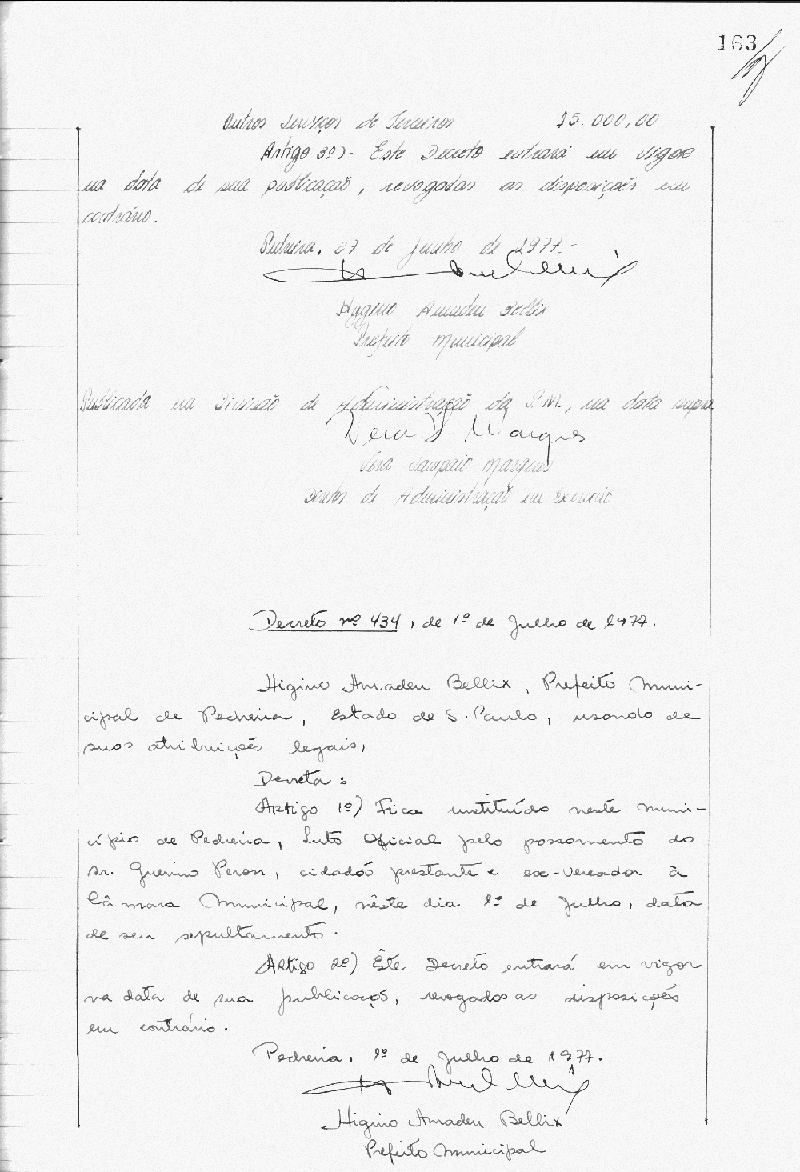 163
Outros Serviços de Terceiros 15.000,00
Artigo 3º)- Este Decreto entrará em vigor
na data de sua publicação, revogadas as disposições em
contrário.
Pedreira, 27 de Junho de 1977.-
Higino Amadeu Bellix
Prefeito Municipal
Publicada na Divisão de Administração da P.M., na data supra
Vera S Marques
Vera Sampaio Marques
Diretor de Administração em Exercício
Decreto nº 434, de 1º de Julho de 1977.
Higino Amadeu Bellix, Prefeito Muni-
cipal de Pedreira, Estado de S. Paulo, usando de
suas atribuições legais,
Decreta:
Artigo 1º) Fica instituído neste Muni-
cípio de Pedreira, Luto Oficial pelo passamento do
sr. Guerino Peron, cidadão prestante e ex-vereador à
Câmara Municipal, nêste dia 1º de Julho, data
de seu sepultamento.
Artigo 2º) Êste Decreto entrará em vigor
na data de sua publicação, revogadas as disposições
em contrário.
Pedreira, 1º de Julho de 1977.
Higino Amadeu Bellix
Prefeito Municipal